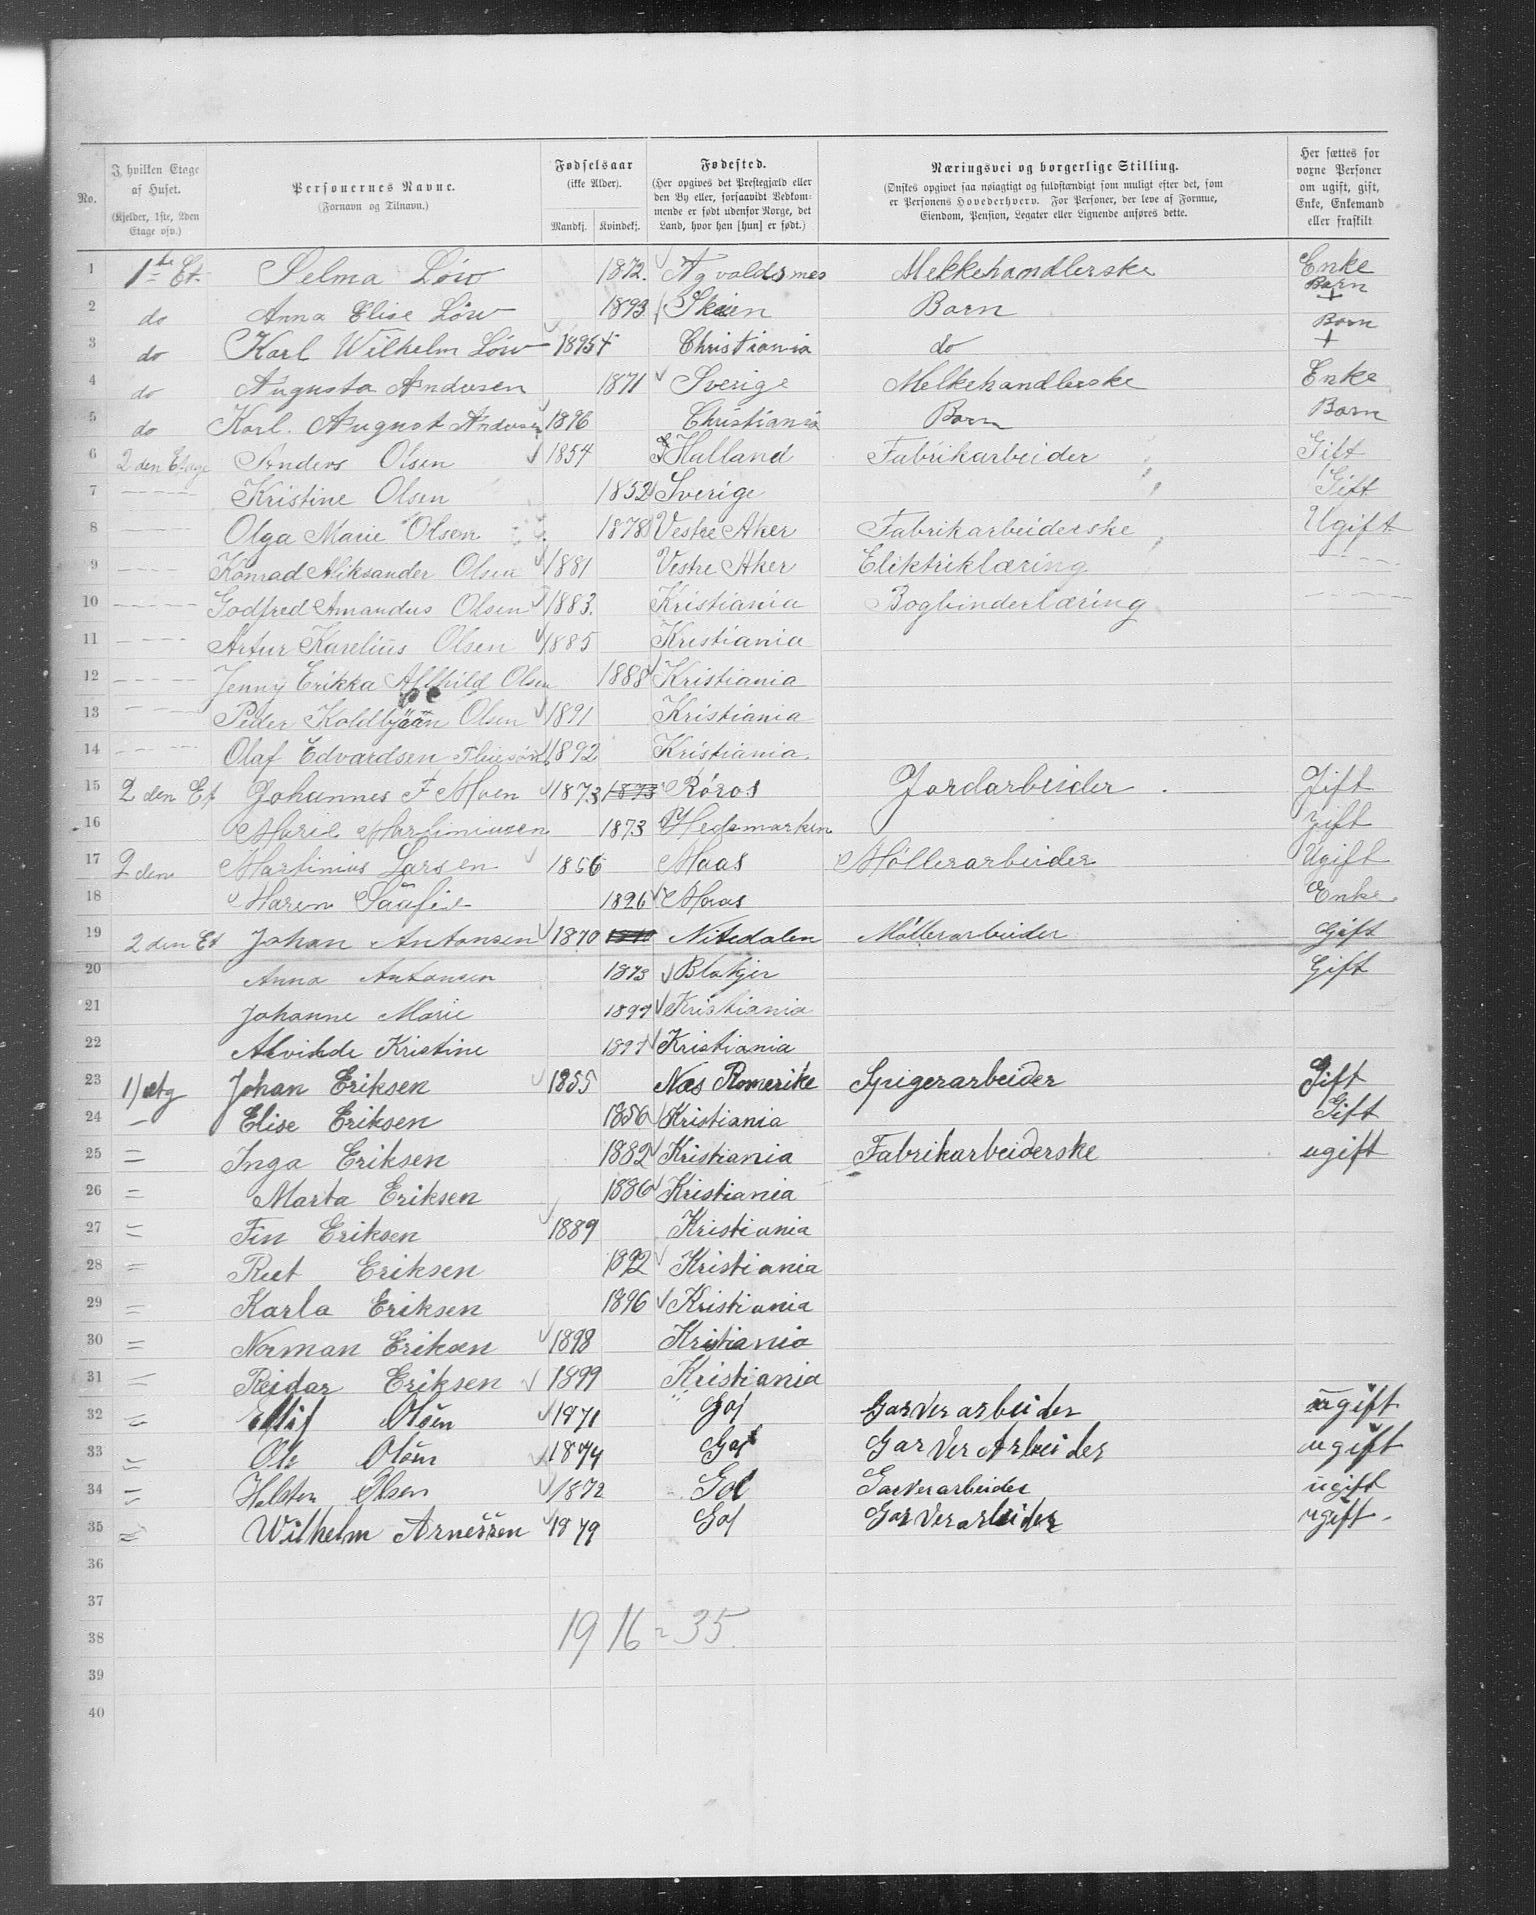 No.
I hvilken Etage af Huset. (Kjelder, 1ste, 2den Etage osv.)
Personernes Navne. (Fornavn og Tilnavn.)
Fødselsaar (ikke Alder). Mandkj. Kvindekj.
Fødested. (Her opgives det Prestegjæld eller den By eller, forsaavidt Vedkommende er født udenfor Norge, det Land, hvor han [hun] er født.)
Næringsvei og borgerlige Stilling. (Ønskes opgivet saa nøiagtigt og fuldstændigt som muligt efter det, som er Personens Hovederhverv. For Personer, der leve af Formue, Eiendom, Pension, Legater eller Lignende anføres dette.)
Her sættes for voxne Personer om ugift, gift, Enke, Enkemand eller fraskilt
1 1ste Et. Selma Löw 1872. Agvaldsnes Melkehandlerske Enke
2 do Anna Elise Löw 1893 Skien Barn Barn +
3 do Karl Wilhelm Löw 1895 + Christiania do Barn +
4 do Augusta Andersen 1871 Sverige Melkehandlerske Enke
5 do Karl. August Andersen 1896 Christiania Barn Barn
6 2 den Etage Anders Olsen 1854 Halland Fabrikarbeider Gift
7 ---- Kristine Olsen 1852 Sverige Gift
8 ---- Olga Marie Olsen 1878 Vestre Aker Fabrikarbeiderske Ugift
9 ---- Konrad Aliksander Olsen 1881 Vestre Aker Eliktriklæring ----
10 ---- Godfred Amandus Olsen 1883. Kristiania Bogbinderlæring ----
11 ---- Artur Karelius Olsen 1885 Kristiania
12 ---- Jenny Erikka Alfhild Olsen 1888 Kristiania
13 ---- Peder Olsen 1891 Kristiania
14 ---- Olaf Edvardsen 1892 Kristiania.
15 2 den Et Johannes F Moen 1873 1873 Röros Jordarbeider . Gift
16 Marie Martiniusen 1873 Hedemarken gift
17 2 den Martinius Larsen 1856 Moas Möllerarbeider Ugift
18 Maren Säafie 1826 Moas Enke
19 2 den Et Johan Antonsen 1870 1870 Nitedalen Möllerarbeider Gift
20 Anna Antonsen 1873 Blakjer Gift
21 Johanne Marie 1897 Kristiania
22 Alvilde Kristine 1897 Kristiania
23 1) etg Johan Eriksen 1855 Næs Romerike Spigerarbeider Gift
24 – Elise Eriksen 1856 Kristiania Gift
25 = Inga Eriksen 1882 Kristiania Fabrikarbeiderske ugift
26 = Marta Eriksen 1886 Kristiania
27 = Fin Eriksen 1889 Kristiania
28 = Rut Eriksen 1892 Kristiania
29 = Karla Eriksen 1896 Kristiania
30 = Norman Eriksen 1898 Kristiania
31 = Reidar Eriksen 1899 Kristiania
32 = Ellif Olsen 1871 Gol Garverarbeider ugift
33 = Ole Olsen 1874 Gol Garverarbeider ugift
34 = Halsten Olsen 1872 Gol Garverarbeider ugift
35 = Wilhelm Arnessen 1879 Gol Garverarbeider ugift-
36
37
38 19 16 = 35.
39
40